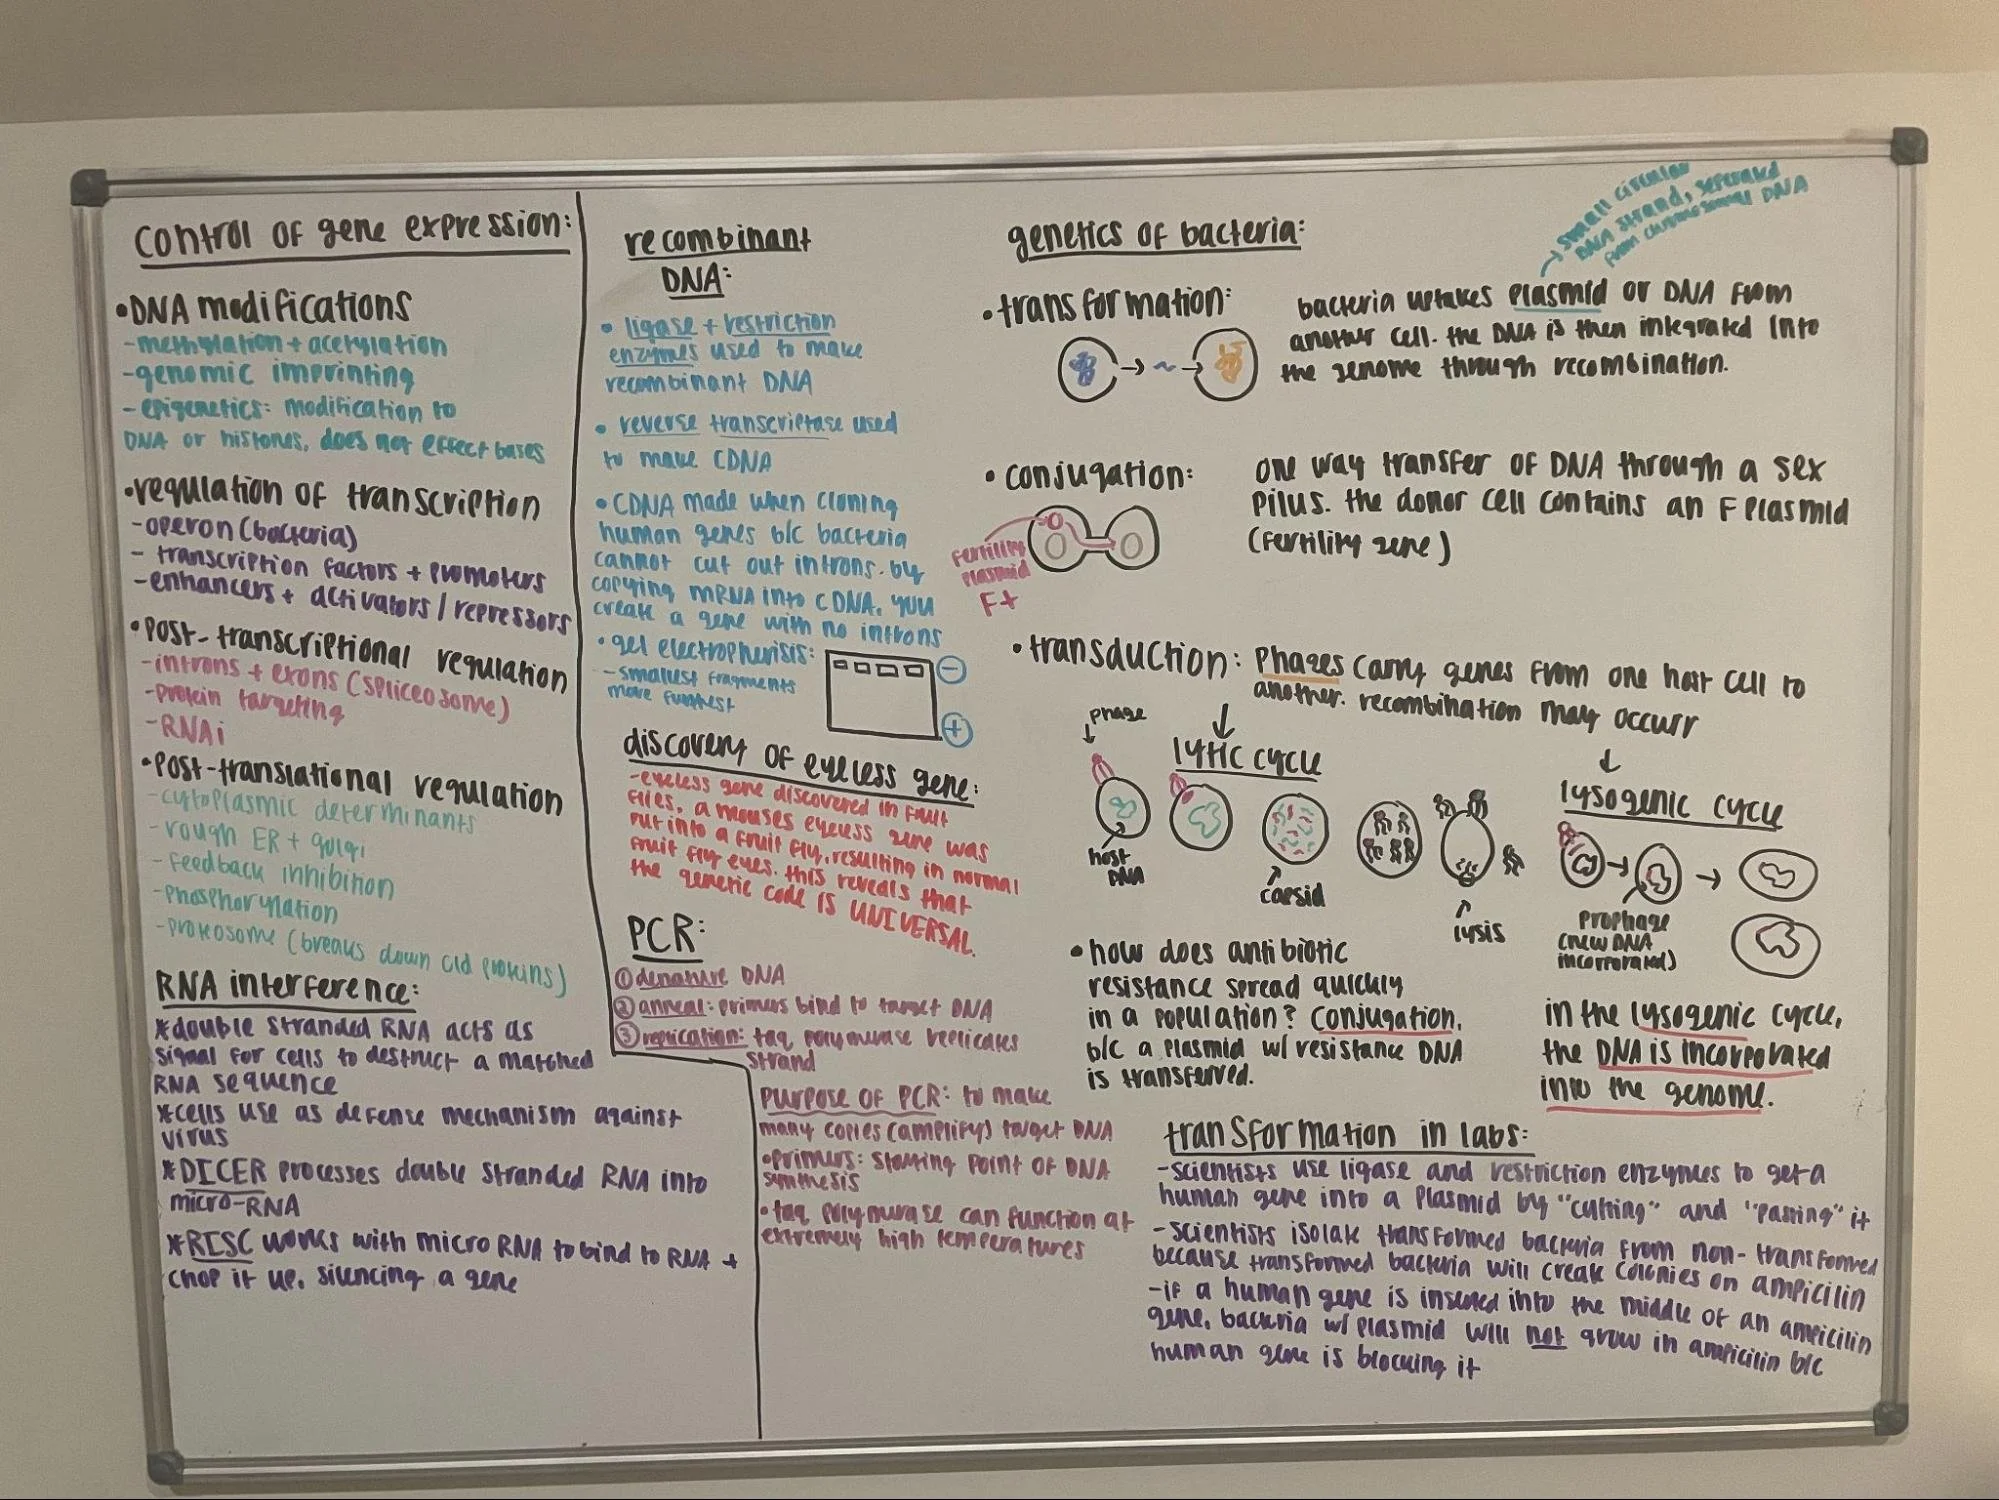 control of gene expression:
•DNA modifications
-methylation + acetylation
-genomic imprinting
-epigenetics: modification to
DNA or histones, does not effect bases
•regulation of transcription
-operon (bacteria)
- transcription factors + promoters
-enhancers + activators / repressors
•Post-transcriptional regulation
-introns + exons (spliceosome)
-protein targeting
-RNAi
•Post-translational regulation
-cytoplasmic determinants
-rough ER + golgi
-feedback inhibition
-phosphorylation
-proteosome (breaks down old proteins)
RNA interference:
*double stranded RNA acts as
signal for cells to destruct a matched
RNA sequence
*cells use as defense mechanism against
virus
*DICER processes double stranded RNA into
micro-RNA
*RISC works with micro RNA to bind to RNA +
chop it up, silencing a gene
recombinant
DNA:
• ligase + restriction
enzymes used to make
recombinant DNA
• reverse transcriptase used
to make CDNA
•CDNA made when cloning
human genes b/c bacteria
cannot cut out introns. by
copying mRNA into CDNA, you
create a gene with no introns
•gel electropherisis:
-smallest fragments
move furthest
−
+
discovery of eyeless gene:
-eyeless gene discovered in fruit
flies. a mouses eyeless gene was
put into a fruit fly, resulting in normal
fruit fly eyes. this reveals that
the genetic code is UNIVERSAL.
PCR:
① denature DNA
② anneal: primers bind to target DNA
③ replication: taq polymerase replicates
strand
purpose of PCR: to make
many copies (amplify) target DNA
•primers: starting point of DNA
synthesis
•taq polymerase can function at
extremely high temperatures
genetics of bacteria:
→ small circular
DNA strand, seperated
from chromosomal DNA
•transformation:
bacteria uptakes plasmid or DNA from
another cell. the DNA is then integrated into
the genome through recombination.
•conjugation:
one way transfer of DNA through a sex
pilus. the donor cell contains an F plasmid
(fertility gene)
fertility
plasmid
F+
•transduction: Phages carry genes from one host cell to
another. recombination may occurr
phage
lytic cycle
host
DNA
capsid
lysis
lysogenic cycle
prophage
(new DNA
incorporated)
•how does antibiotic
resistance spread quickly
in a population? conjugation,
b/c a plasmid w/ resistance DNA
is transferred.
in the lysogenic cycle,
the DNA is incorporated
into the genome.
transformation in labs:
-scientists use ligase and restriction enzymes to get a
human gene into a plasmid by "cutting" and "pasting" it
-scientists isolate transformed bacteria from non-transformed
because transformed bacteria will create colonies on ampicilin
-if a human gene is inserted into the middle of an ampicilin
gene, bacteria w/ plasmid will not grow in ampicilin b/c
human gene is blocking it